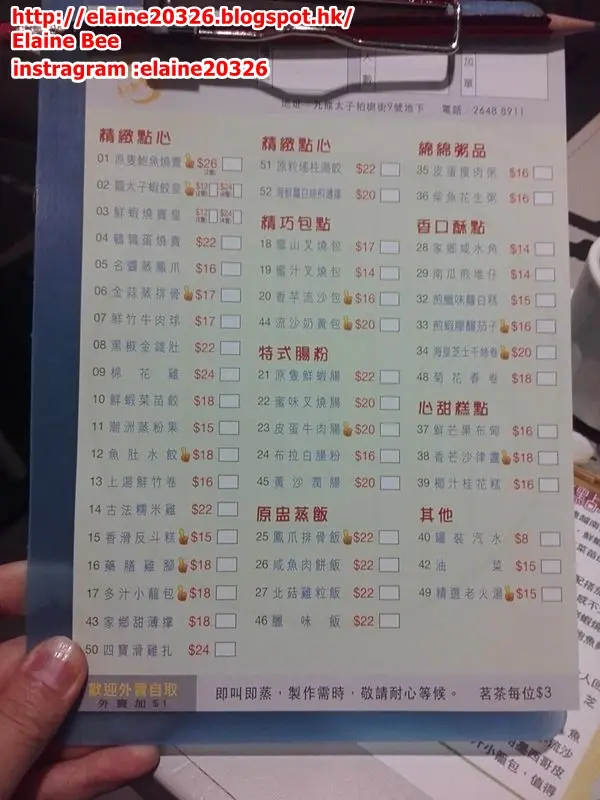 http://elaine20326.blogspot.hk/
Elaine Bee
instragram :elaine20326
人數
加單
地址：九龍太子柏樹街9號地下 電話：2648 8911
精緻點心
01 原隻鮑魚燒賣 $26
02 龍太子蝦餃皇 $12 $24
03 鮮蝦燒賣皇 $12 $24
04 鵪鶉蛋燒賣 $22
05 名醬蒸鳳爪 $16
06 金蒜蒸排骨 $17
07 鮮竹牛肉球 $17
08 黑椒金錢肚 $22
09 棉花雞 $24
10 鮮蝦菜苗餃 $18
11 潮洲蒸粉果 $15
12 魚肚水餃 $18
13 上湯鮮竹卷 $16
14 古法糯米雞 $22
15 香滑反斗糕 $15
16 藥膳雞腳 $18
17 多汁小龍包 $18
43 家鄉甜薄撐 $18
50 四寶滑雞扎 $24
精緻點心
51 原粒瑤柱湯餃 $22
52 海鮮蘿白絲煎薄撐 $20
精巧包點
18 雪山叉燒包 $17
19 蜜汁叉燒包 $14
20 香芋流沙包 $16
44 流沙奶黃包 $20
特式腸粉
21 原隻鮮蝦腸 $22
22 蜜味叉燒腸 $20
23 皮蛋牛肉腸 $20
24 布拉白腸粉 $16
45 黃沙潤腸 $20
原盅蒸飯
25 鳳爪排骨飯 $22
26 咸魚肉餅飯 $22
27 北菇雞粒飯 $22
46 臘味飯 $22
綿綿粥品
35 皮蛋瘦肉粥 $16
36 柴魚花生粥 $16
香口酥點
28 家鄉咸水角 $14
29 南瓜煎堆仔 $14
32 煎臘味蘿白糕 $15
33 煎蝦膠釀茄子 $16
34 海皇芝士千絲卷 $20
48 菊花春卷 $18
心甜糕點
37 鮮芒果布甸 $16
38 香芒沙律盞 $18
39 椰汁桂花糕 $16
其他
40 罐裝汽水 $8
42 油菜 $15
49 精選老火湯 $15
歡迎外賣自取
外賣加$1
即叫即蒸，製作需時，敬請耐心等候。 茗茶每位$3